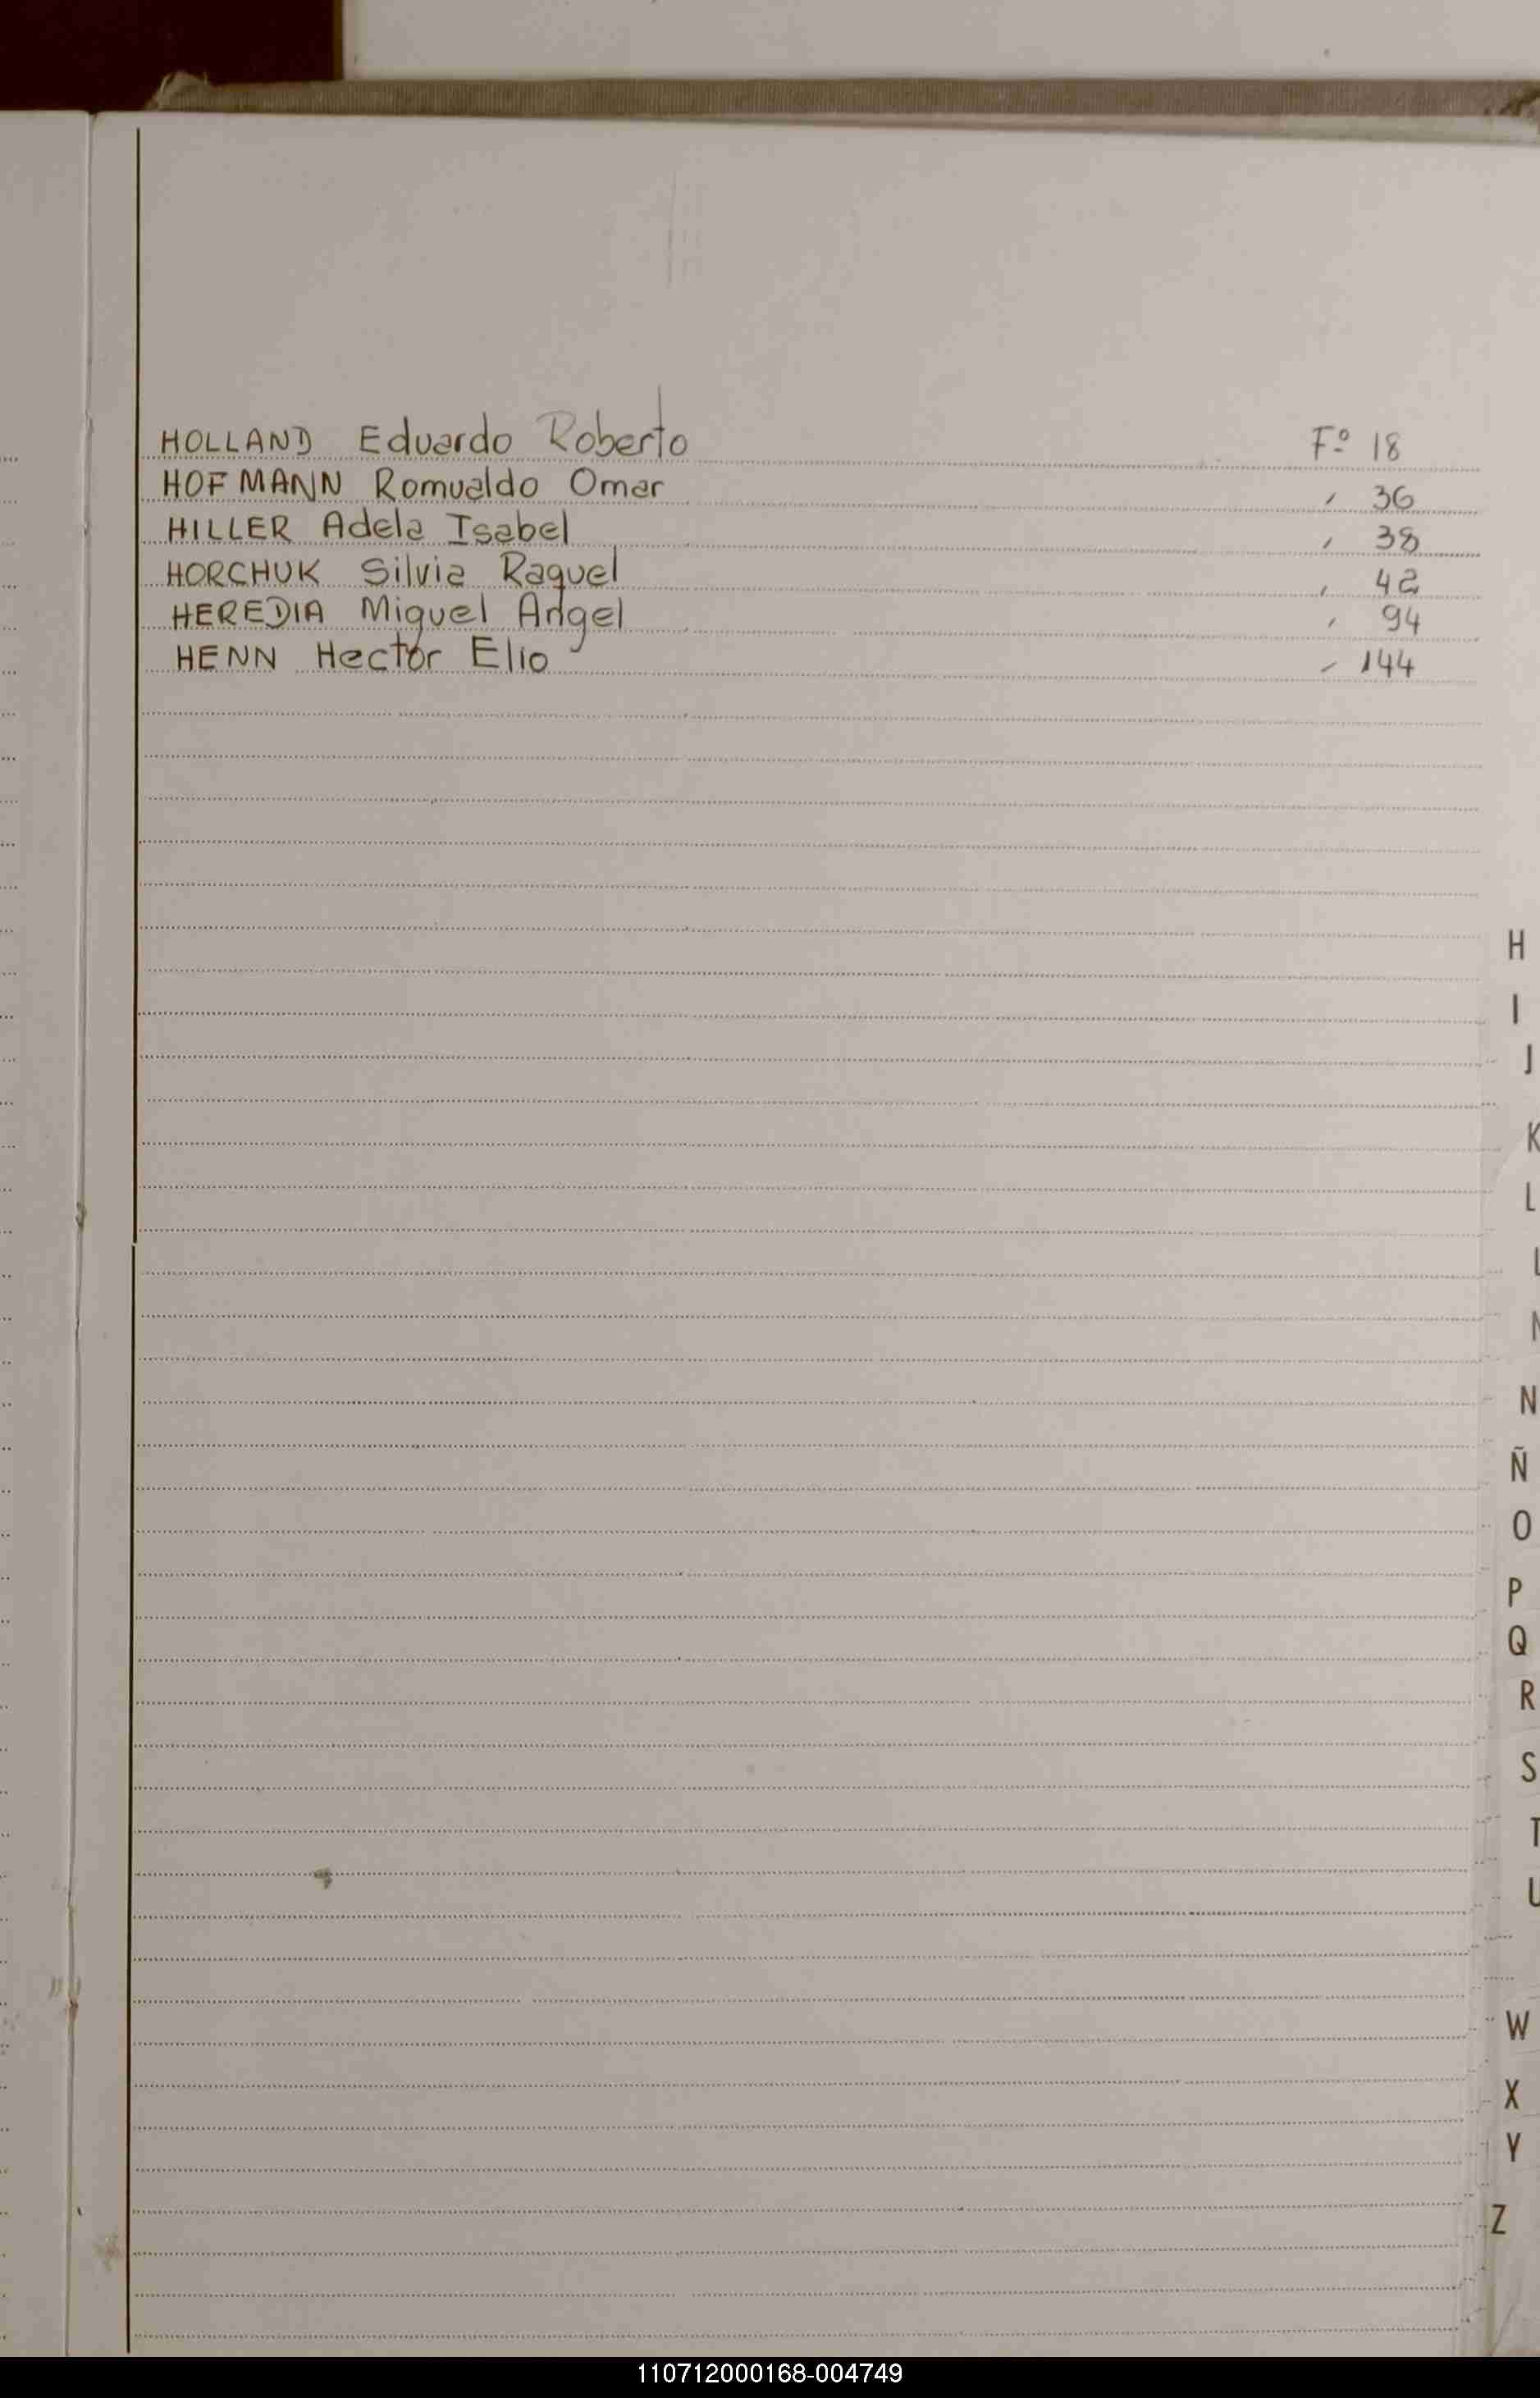 HOLLAND Eduardo Roberto Fº 18
HOFMANN Romualdo Omar , 36
HILLER Adela Isabel , 38
HORCHUK Silvia Raquel , 42
HEREDIA Miguel Angel , 94
HENN Hector Elio - 144
H
I
J
K
L
N
Ñ
O
P
Q
R
S
T
U
W
X
Y
Z
110712000168-004749